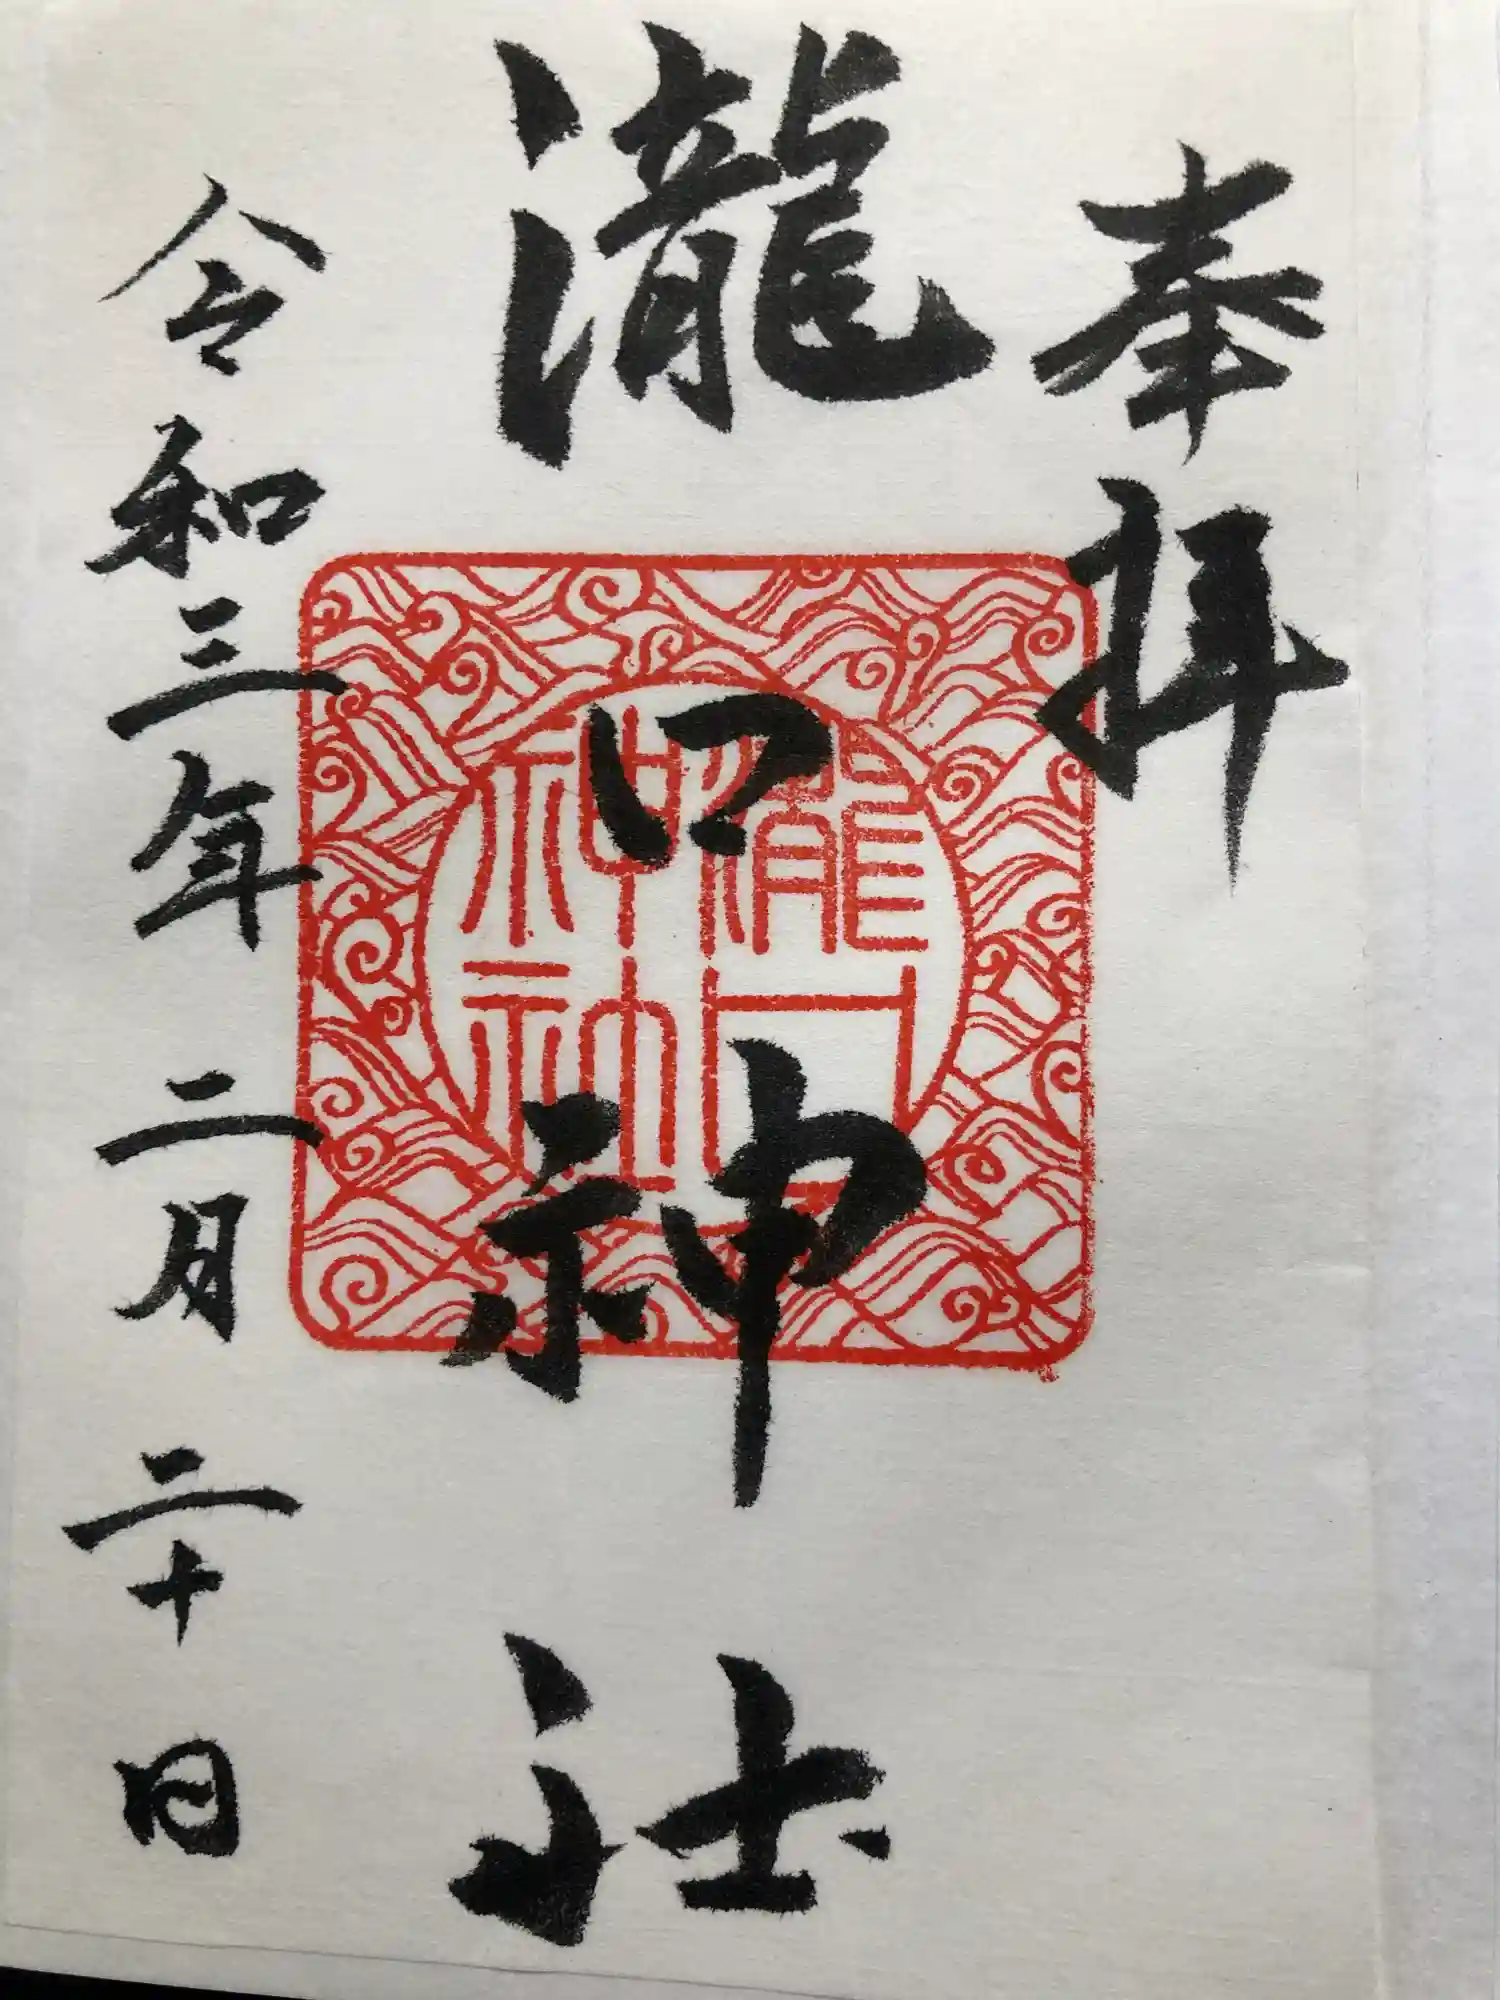 奉拝
瀧口神社
令和三年二月二十日